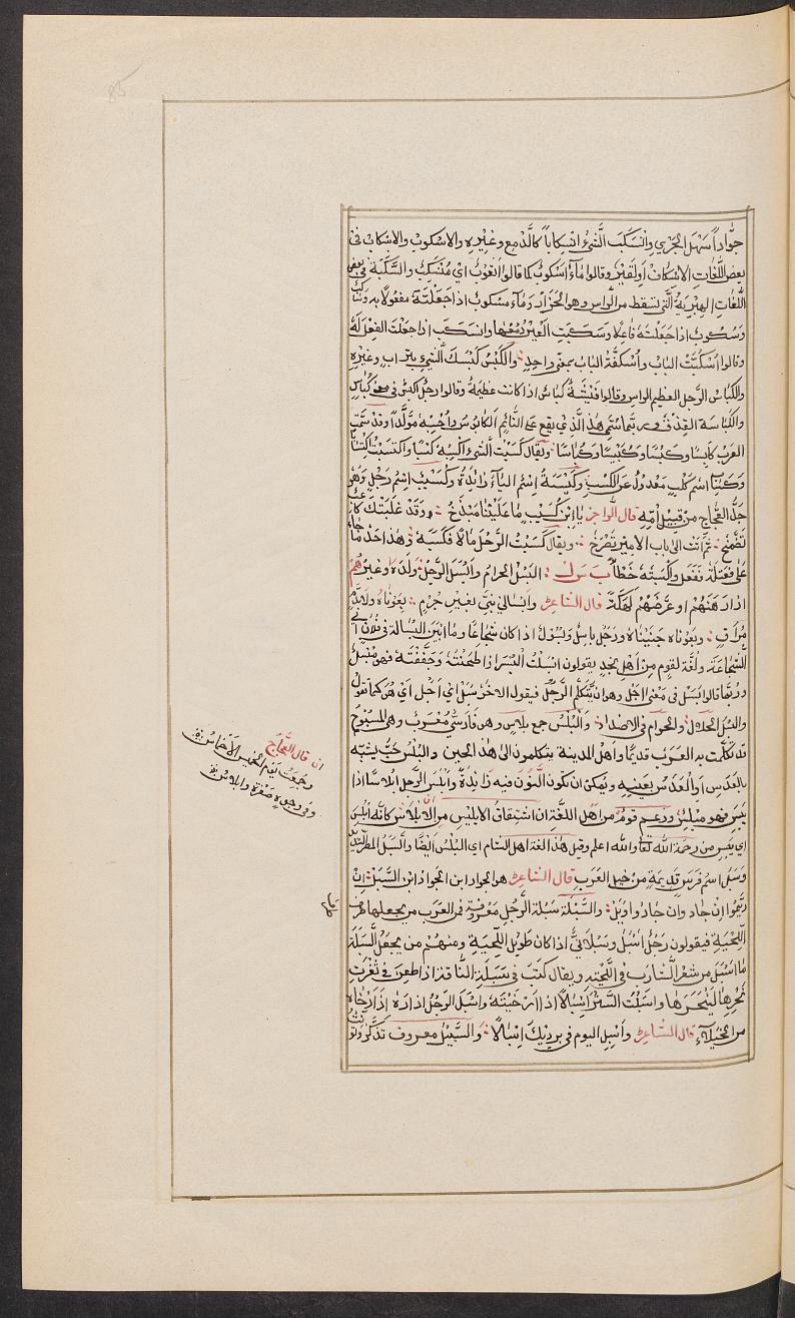 جوّاداً سَهلَ الجَري وانسَكَبَ الشّيءُ انسِكاباً كالدّمع وغيرِه والاسكوبُ والاسكابُ في
بعض اللّغاتِ الاسكافُ اوالقَينُ وقالوا ماءٌ اُسكُوبٌ كما قالوا اُثعُوبٌ اي مُنسَكِبٌ والسَّكَبة في بعض
اللّغات الهِبرِيَةُ الّتي تسقط من الرّاس وهو الحَزازُ وماءٌ مسكوبٌ اذا جَعَلتَه مفعولًا به
وسَكُوبٌ اذا جَعَلتَه فاعلا وسَكَبَتِ العَينُ دمعَها وانسَكَبَ اذا جعلتَ الفِعلَ لَهُ
وقالوا اُسكُبَّةُ البابِ واُسكُفَّةُ البابِ بمعنى واحدٍ والكَبسُ كَبسُكَ الشّيءَ بترابٍ وغيرِه
والكُباسُ الرّجل العظيم الراس وقالوا فَيشَةٌ كُباسٌ اذا كانت عظيمةً وقالوا رجُلٌ اكبسُ في معنى كُباسٍ
والكِباسَة العِذقُ فامّا تسميتهم هذا الّذي يقع على النّائم الكابُوسَ واَحسِبُه مُوَلَّداً وقد سَمَّتِ
العَرَبُ كابِسًا وكَبسًا وكُبَيسًا وكُباسًا ويُقال كَسَبتُ الشّيءَ اَكسِبُه كَسبًا واكتَسَبتُ اكتِسَابًا
وكَسابِ اسمُ كلبٍ مَعدُولٌ عَن الكَسبِ وكَيسَبةُ اسمٌ الياءُ زائدةٌ وكُسَيبٌ اسمُ رجلٍ وهُو
جدُّ العجّاج من قِبَلِ اُمّه قال الرّاجز يا ابنَ كُسَيبٍ ما عَلَينا مَبذَخُ قد غَلَبَتكَ كاعِبٌ
تَضَمَّخُ ثمّ اتَت الى باب الامير تَصرَخُ ويقال كَسَبتُ الرّجلَ مالًا فكَسَبَه وهذا احدُ ما جاء
على فعَلتُه ففَعَل واكسَبتُه خطأٌ ب س ل البَسلُ الحرامُ واَبسَلَ الرّجلُ ولَدَه وغيرَهُم
اذا رَهَنَهُم او عَرَّضَهُم لهَلَكةٍ قال الشاعرُ وابسالي بَنِيَّ بغيرِ جُرمٍ بَعَوناهُ ولا بدَمٍ
مُراقٍ وبَعَوناه جَنَيناه ورجُلٌ باسِلٌ وبَسُولٌ اذا كان شجاعًا وما ابيَنَ البَسالةَ في فلانٍ اي
الشّجاعَةَ ولُغَة لقوم مِن اَهلِ نجدٍ يقولون اَبسَلتُ البُسرَ اذا طَبَختَهُ وجَفَّفتَه فهو مُبسَلٌ
ورُبّما قالوا بَسَل في معنى اَجَل وهو ان يَتكلّم الرّجُل فيقول الاخر بَسَل اي اَجَل اَي هُوَ كما تقول
والبَسلُ الحلالُ والحرام في الاضداد والبُلُسُ جمع بلاسٍ وهو فارسيٌّ مُعَرَّبٌ وهي المُسوحُ
قد تكلَّمَت به العَرَب قديمًا واَهل المدينة يتكلمون الى هذا الحين والبُلسُنُ حَبٌّ يشبّه
بالعدَس اَو العَدَسُ بعينه ويُمكن ان تكون النّون فيه زائدةً واَبلَسَ الرّجل ابلاسًا اذا
يئسَ فهو مُبلِسٌ وزَعَم قومٌ من اَهل اللّغة ان اشتقاقَ الابليس من الابلاس كانّه اُبلِسَ
اي يَئس من رحمة الله تعا والله اعلم وقيل هذا لغة اهل الشام
وسَبَلُ اسم فرسٍ قديمةٍ من خيل العرب قال الشاعرُ هو الجواد ابن الجواد ابن السَّبَل اِن
دَيَّمُوا اِن جاد وان جادُوا وَبَل والسَّبَلَة سَبَلة الرّجل مَعرُوفة فمن العَرَب من يجعلها طرف
اللّحية فيقولون رَجُلٌ اَسبَلُ وسَبَلانيٌّ اذا كان طويل اللّحية ومنهُم من يجعَل السَّبَلَةَ
ما اَسبَل من شَعر الشّارب في اللّحية ويقال كَتَب في سَبَلة النّاقة اذا طعن في ثُغرة
نحرها ليَنحَرَها واَسبَلتُ السّترَ اِسبالًا اذا ارخَيتَه واَسبَل الرَجُل ازارَه اذا اَرخاه
من الخُيَلاء قال الشاعرُ واَسبِل اليوم في بُردَيكَ اِسبالًا والسّبيلُ معروف تذكّر وتؤنّث
ان قال العجّاج
وجمعت يوم الخميس الاخماسُ
وفي وجوه صُفرة وابلاسُ